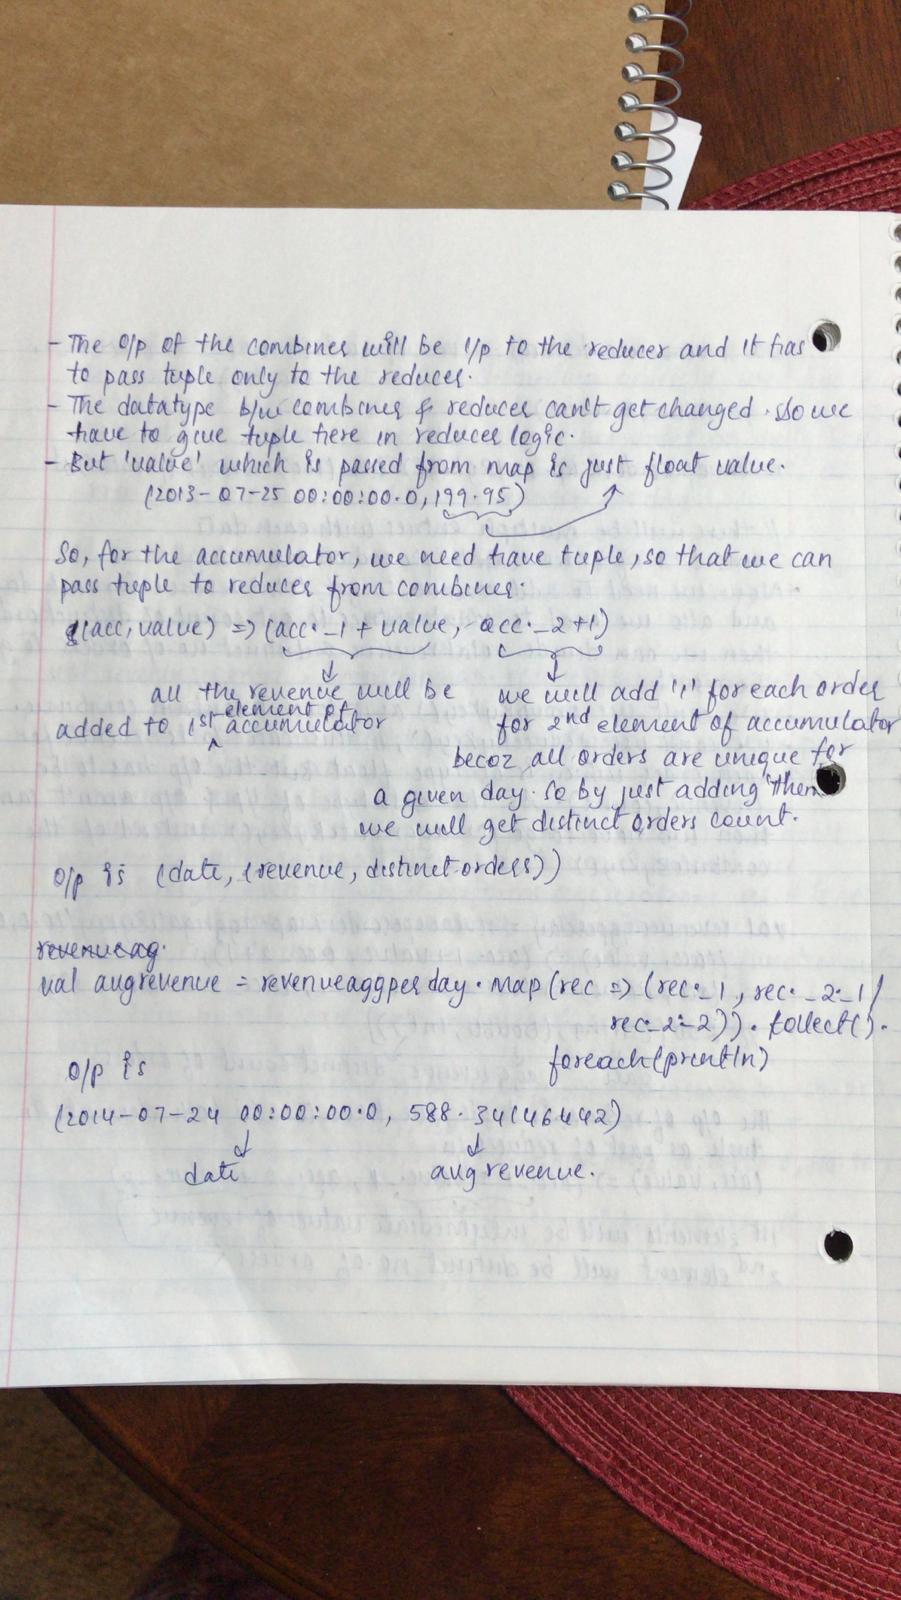 - The o/p of the combiner will be i/p to the reducer and it has
to pass tuple only to the reducer.
- The datatype b/w combiner & reducer can't get changed. so we
have to give tuple here in reducer logic.
- But 'value' which is passed from map is just float value.
(2013-07-25 00:00:00.0, 199.95)
So, for the accumulator, we need have tuple, so that we can
pass tuple to reducer from combiner.
(acc, value) => (acc._1 + value, acc._2+1)
all the revenue will be
added to 1st element of accumulator
we will add '1' for each order
for 2nd element of accumulator
becoz all orders are unique for
a given day. so by just adding them
we will get distinct orders count.
o/p is (date, (revenue, distinct orders))
revenueag.
val avgrevenue = revenueaggperday.map(rec => (rec._1, rec._2._1/
rec._2._2)).collect().
foreach(println)
o/p is
(2014-07-24 00:00:00.0, 588.34146442)
date
avg revenue.